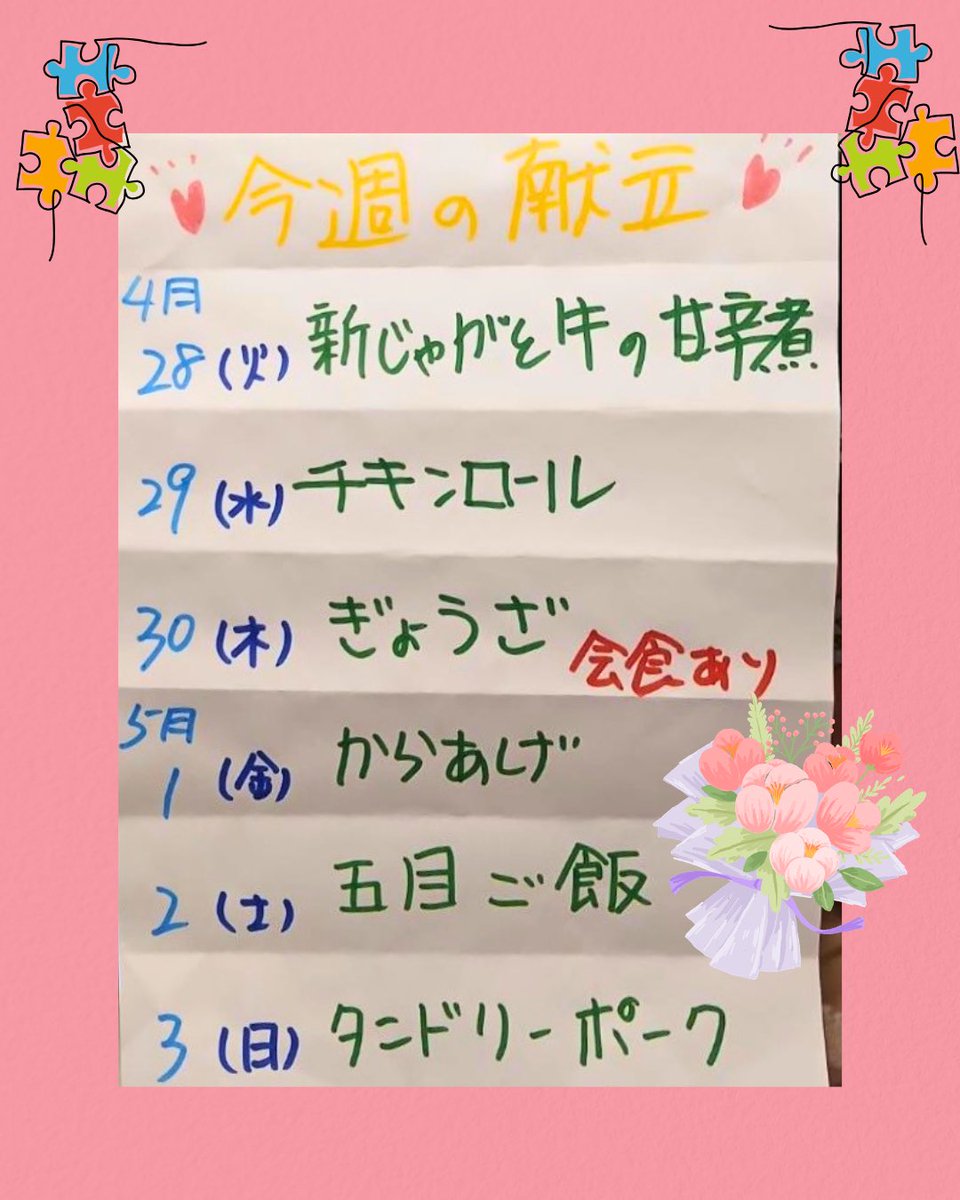 今週の献立
4月
28(火) 新じゃがと牛の甘辛煮
29(水) チキンロール
30(木) ぎょうざ
会食あり
5月
1(金) からあげ
2(土) 五目ご飯
3(日) タンドリーポーク